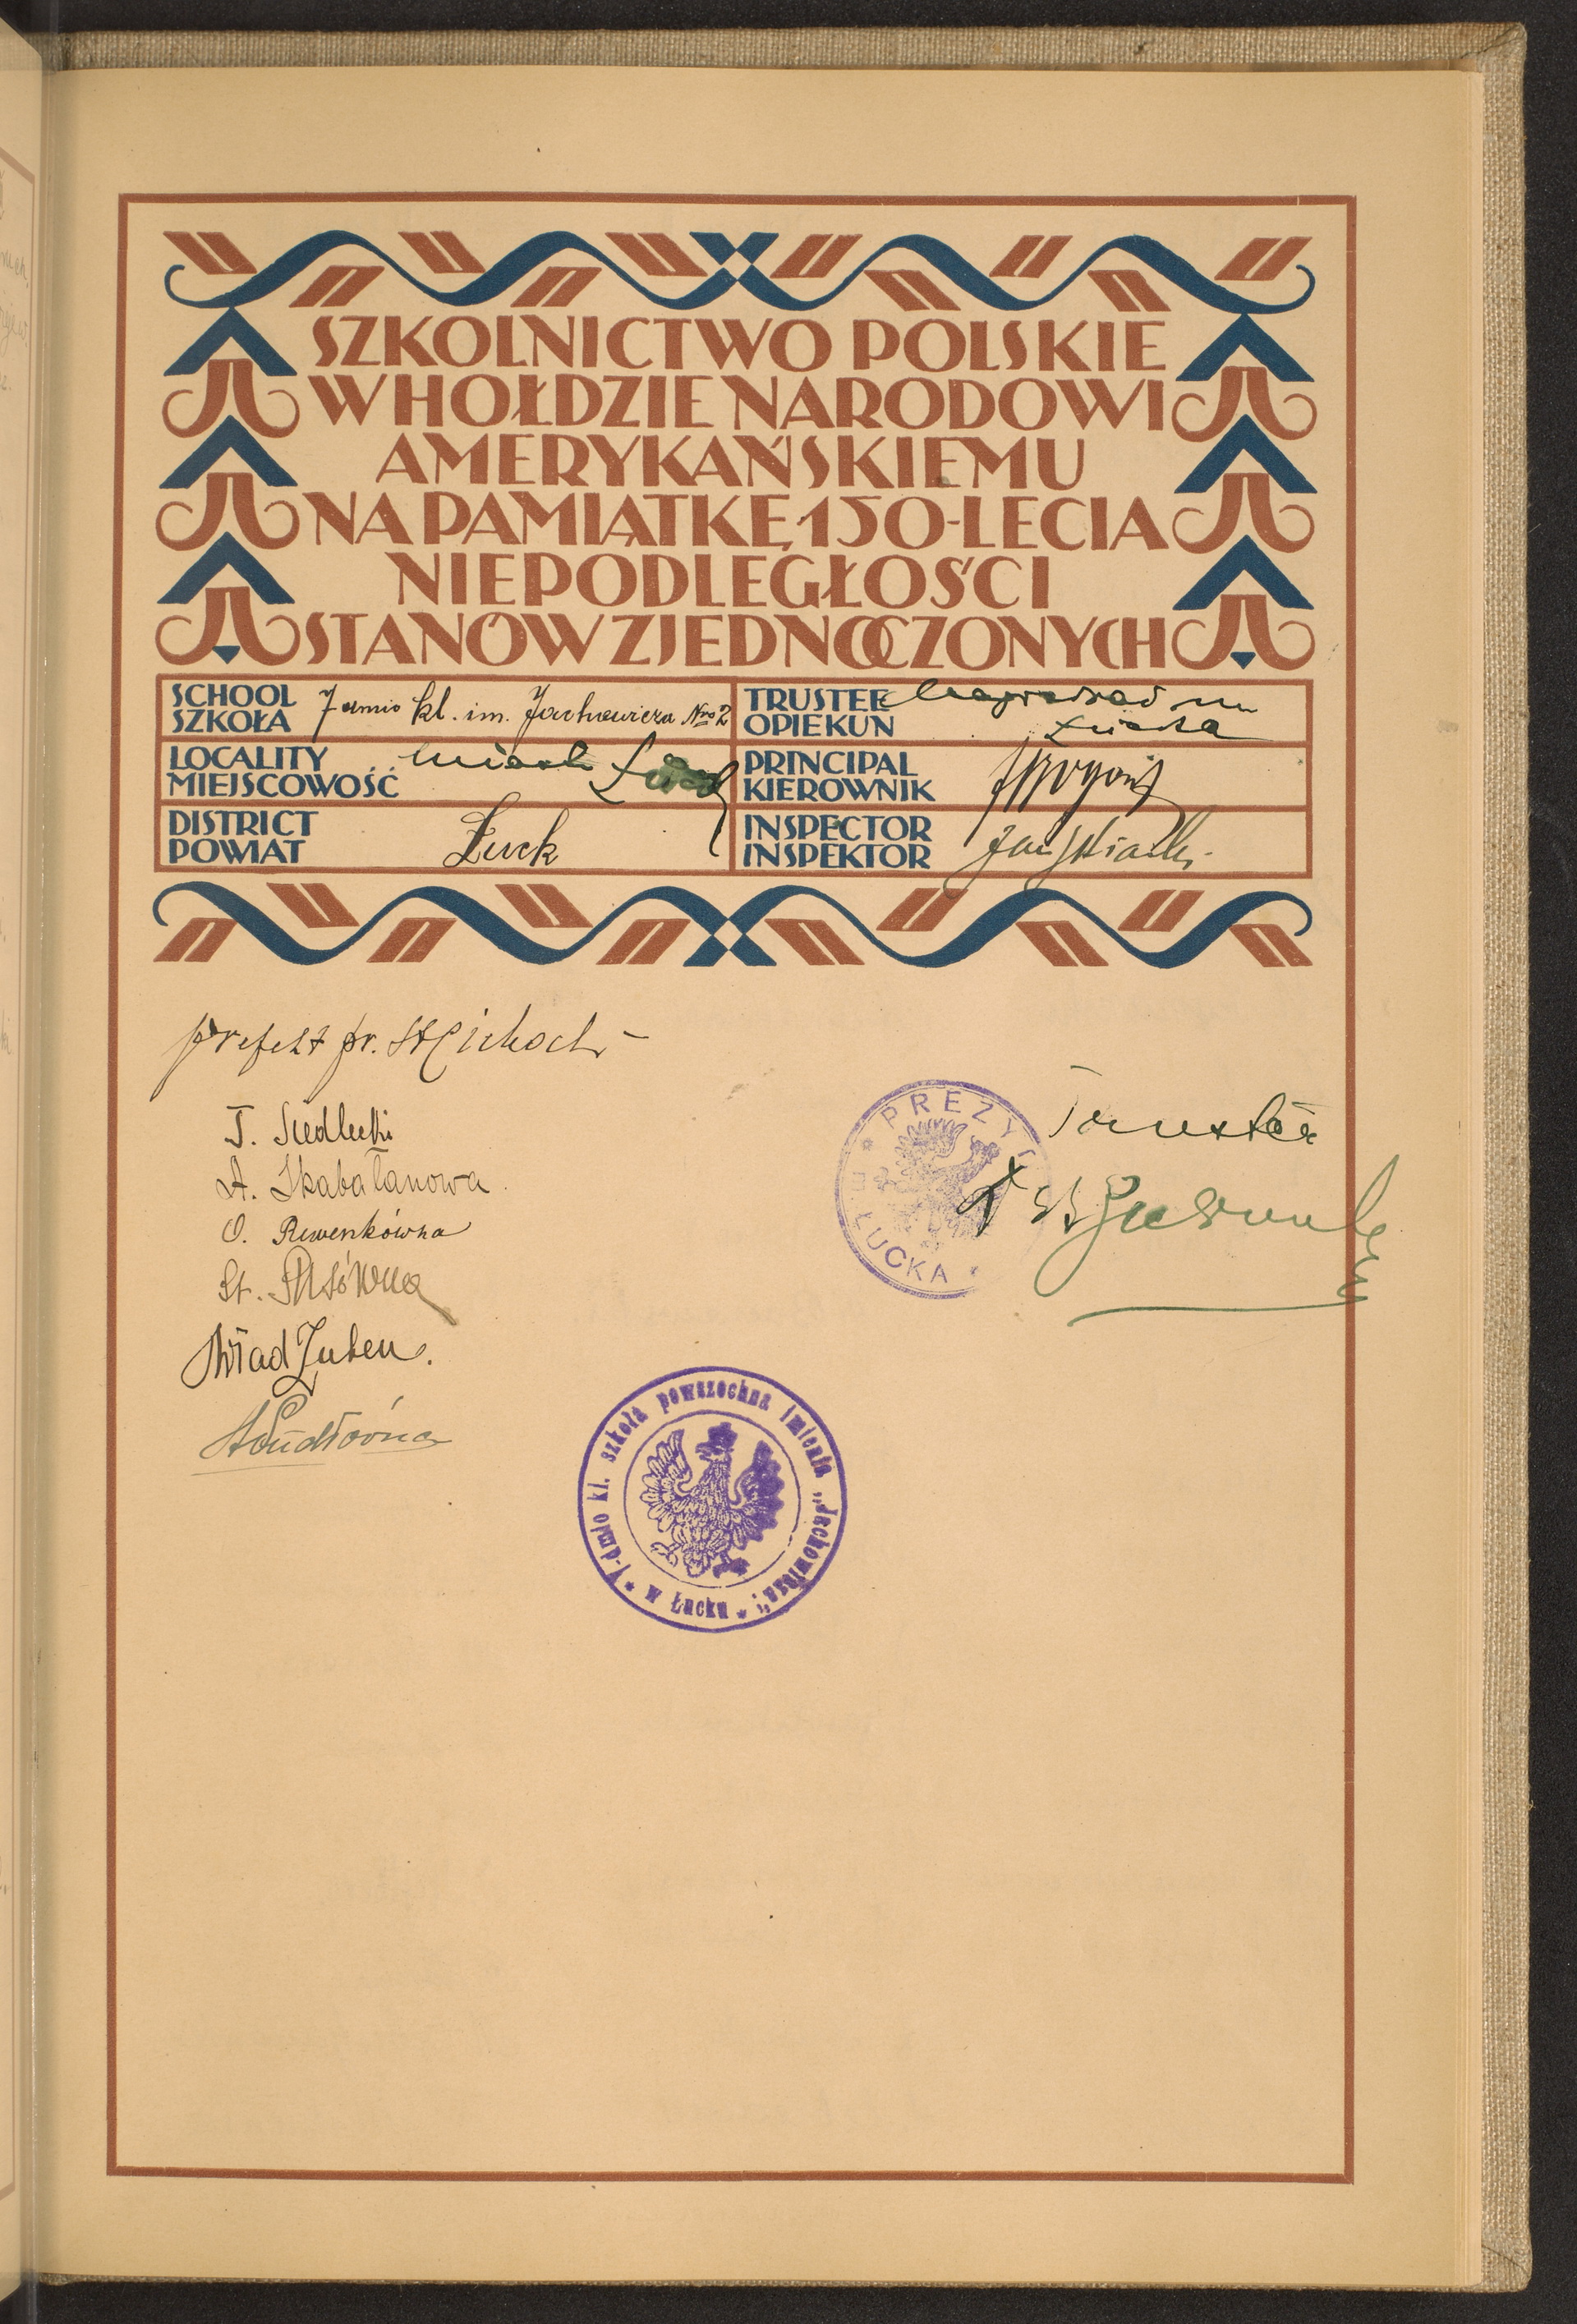 SZKOLNICTWO POLSKIE
W HOŁDZIE NARODOWI
AMERYKAŃSKIEMU
NA PAMIĄTKĘ 150-LECIA
NIEPODLEGŁOŚCI
STANÓW ZJEDNOCZONYCH
SCHOOL
SZKOŁA
7 dmio kl. im. Jachowicza Nro 2
TRUSTEE
OPIEKUN
Magistrat m.
Łucka
LOCALITY
MIEJSCOWOŚĆ
miasto Łuck
PRINCIPAL
KIEROWNIK
DISTRICT
POWIAT
Łuck
INSPECTOR
INSPEKTOR
Jan
prefekt
J. Siedlecki
A. Skabałanowa
O. Rewenkówna
St.
Wład
PREZY
M. ŁUCKA
7-dmio kl. szkoła powszechna imienia „Jachowicza”
w Łucku